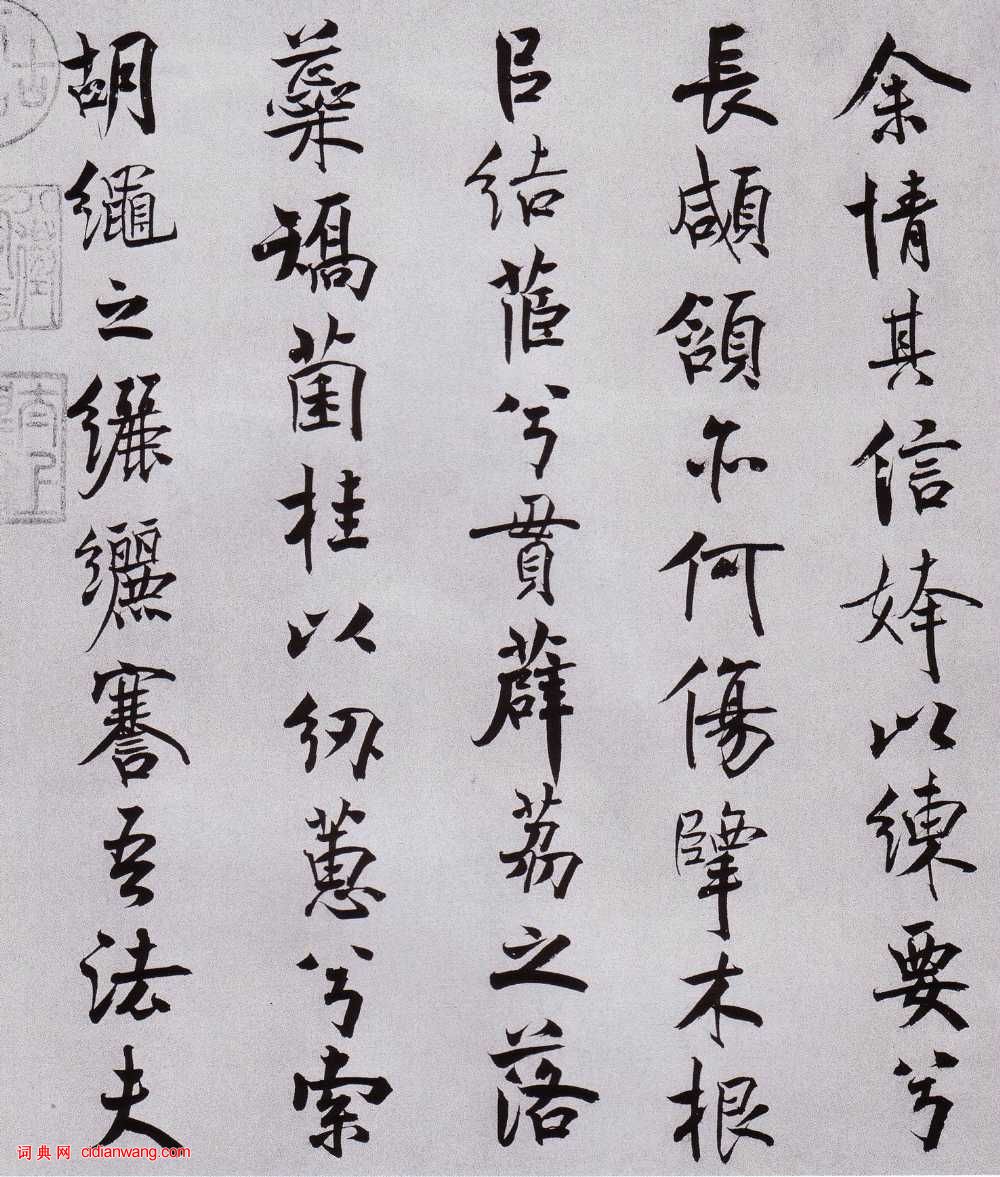 余情其信姱以練要兮
長顑頷亦何傷擥木根
㠯結茝兮貫薜荔之落
蘂矯菌桂以紉蕙兮索
胡繩之纚纚謇吾法夫
词典网 cidianwang.com